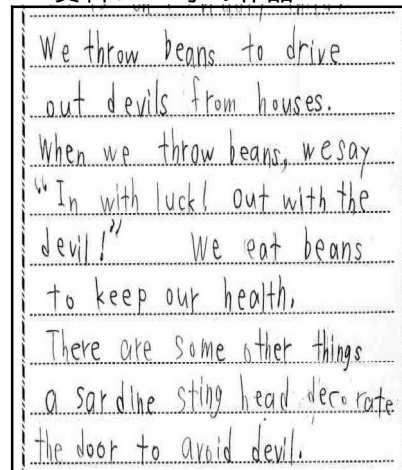 We throw beans to drive
out devils from houses.
When we throw beans, we say
"In with luck! out with the
devil!" We eat beans
to keep our health.
There are some other things
a sardine sting head decorate
the door to avoid devil.